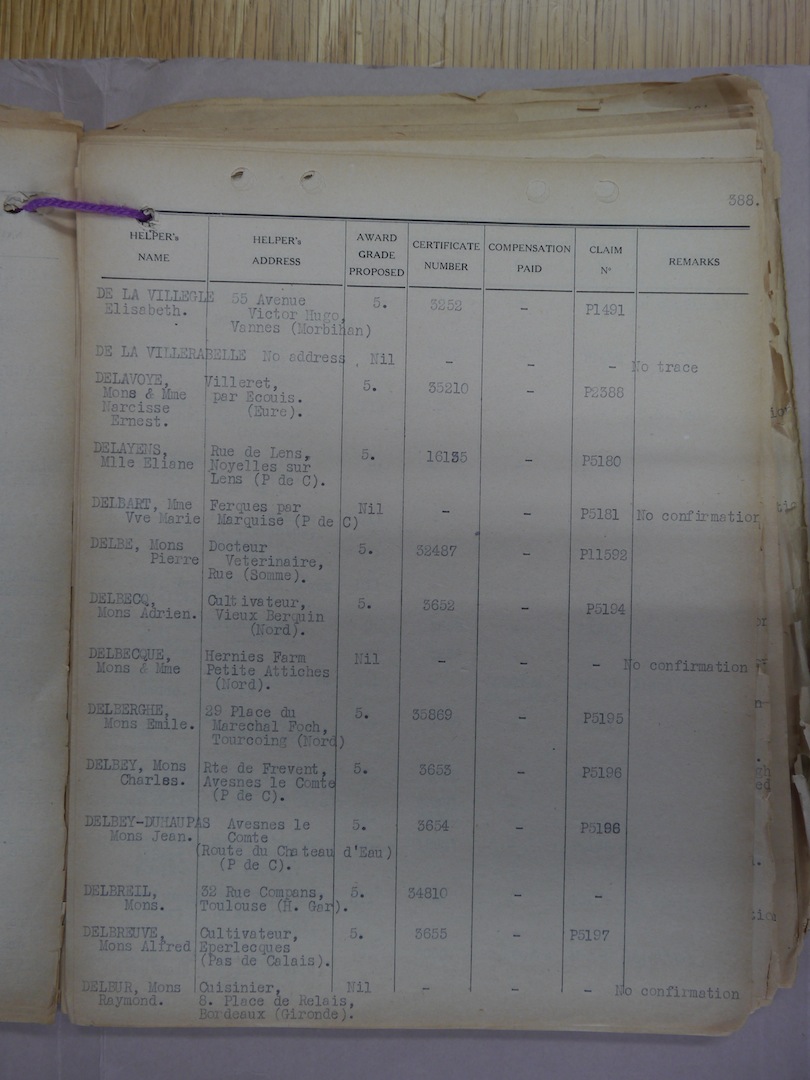 388.
HELPER's NAME HELPER's ADDRESS AWARD GRADE PROPOSED CERTIFICATE NUMBER COMPENSATION PAID CLAIM No REMARKS
DE LA VILLEGLE 55 Avenue 5. 3252 - P1491
Elisabeth. Victor Hugo,
Vannes (Morbihan)
DE LA VILLERABELLE No address, Nil - - - No trace
DELAVOYE, Villeret, 5. 35210 - P2388
Mons & Mme par Ecouis.
Narcisse (Eure).
Ernest.
DELAYENS, Rue de Lens, 5. 16135 - P5180
Mlle Eliane Noyelles sur
Lens (P de C).
DELBART, Mme Ferques par Nil - - P5181 No confirmation
Vve Marie Marquise (P de C)
DELBE, Mons Docteur 5. 32487 - P11592
Pierre Veterinaire,
Rue (Somme).
DELBECQ, Cultivateur, 5. 3652 - P5194
Mons Adrien. Vieux Berquin
(Nord).
DELBECQUE, Hernies Farm Nil - - - No confirmation
Mons & Mme Petite Attiches
(Nord).
DELBERGHE, 29 Place du 5. 35869 - P5195
Mons Emile. Marechal Foch,
Tourcoing (Nord)
DELBEY, Mons Rte de Frevent, 5. 3653 - P5196
Charles. Avesnes le Comte
(P de C).
DELBEY-DUHAUPAS Avesnes le 5. 3654 - P5198
Mons Jean. Comte
(Route du Chateau d'Eau)
(P de C).
DELBREIL, 32 Rue Compans, 5. 34810 - -
Mons. Toulouse (H. Gar).
DELBREUVE, Cultivateur, 5. 3655 - P5197
Mons Alfred Eperlecques
(Pas de Calais).
DELBUR, Mons Cuisinier, Nil - - - No confirmation
Raymond. 8. Place de Relais,
Bordeaux (Gironde).